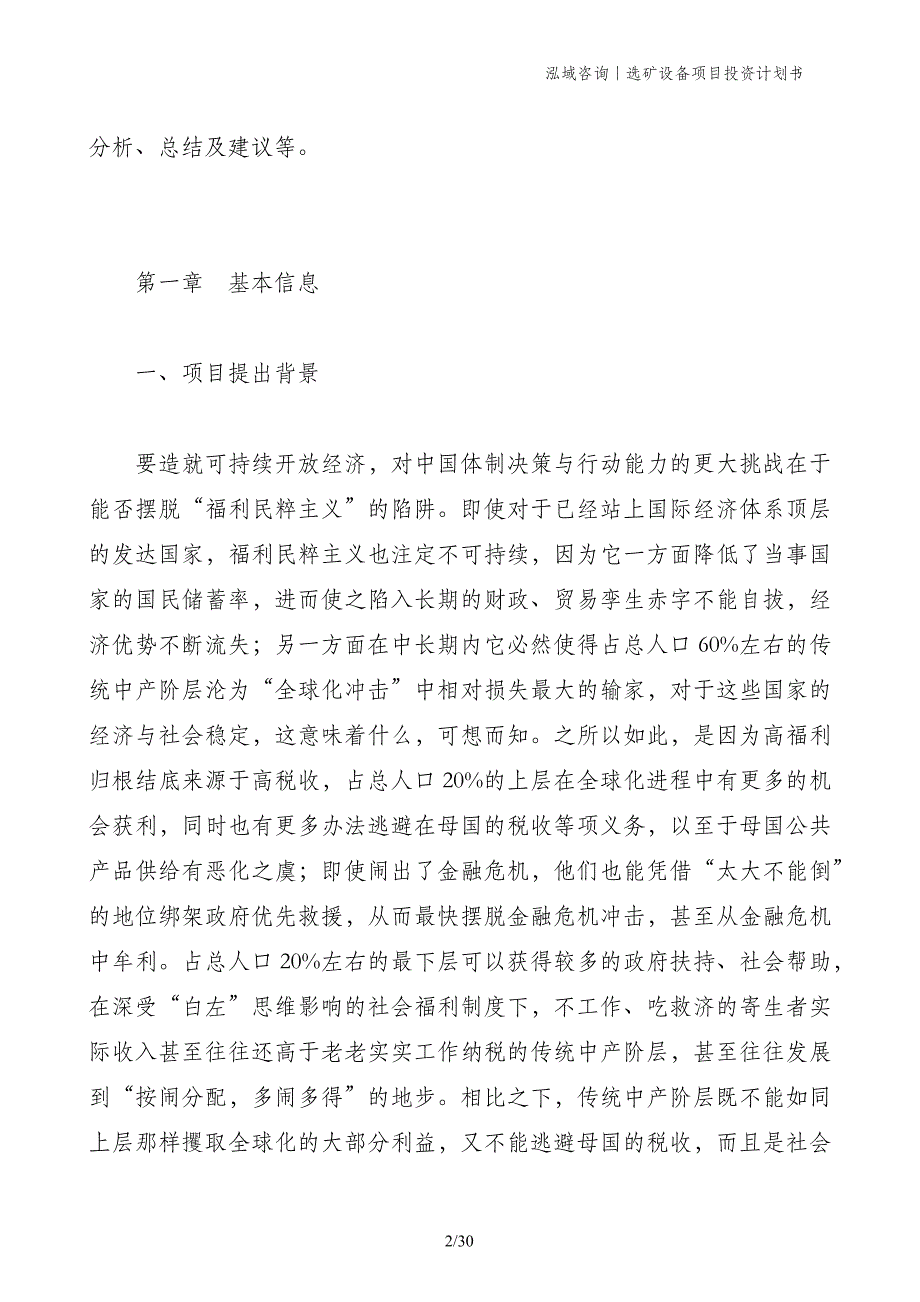 泓域咨询｜选矿设备项目投资计划书
分析、总结及建议等。
第一章　基本信息
一、项目提出背景
要造就可持续开放经济，对中国体制决策与行动能力的更大挑战在于
能否摆脱“福利民粹主义”的陷阱。即使对于已经站上国际经济体系顶层
的发达国家，福利民粹主义也注定不可持续，因为它一方面降低了当事国
家的国民储蓄率，进而使之陷入长期的财政、贸易孪生赤字不能自拔，经
济优势不断流失；另一方面在中长期内它必然使得占总人口 60%左右的传
统中产阶层沦为“全球化冲击”中相对损失最大的输家，对于这些国家的
经济与社会稳定，这意味着什么，可想而知。之所以如此，是因为高福利
归根结底来源于高税收，占总人口 20%的上层在全球化进程中有更多的机
会获利，同时也有更多办法逃避在母国的税收等项义务，以至于母国公共
产品供给有恶化之虞；即使闹出了金融危机，他们也能凭借“太大不能倒”
的地位绑架政府优先救援，从而最快摆脱金融危机冲击，甚至从金融危机
中牟利。占总人口 20%左右的最下层可以获得较多的政府扶持、社会帮助，
在深受“白左”思维影响的社会福利制度下，不工作、吃救济的寄生者实
际收入甚至往往还高于老老实实工作纳税的传统中产阶层，甚至往往发展
到“按闹分配，多闹多得”的地步。相比之下，传统中产阶层既不能如同
上层那样攫取全球化的大部分利益，又不能逃避母国的税收，而且是社会
2/30